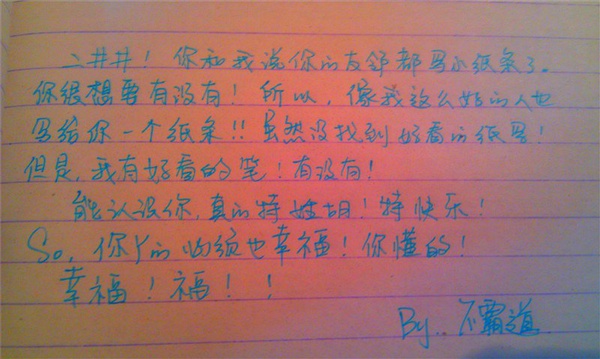 二井井！你和我说你的友邻都写小纸条了。
你很想要有没有！所以，像我这么好的人也
写给你一个纸条!!虽然没找到好看的纸写！
但是，我有好看的笔！有没有！
能认识你，真的特！特快乐！
So，你丫的必须也幸福！你懂的！
幸福！福！！
By..不霸道